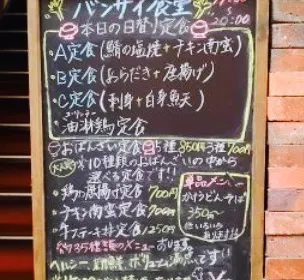 バンサイ食堂
20:00
本日の日替り定食
・A定食(鯖の塩焼+チキン南蛮)
・B定食(あらだき+唐揚げ)
・C定食(刺身+白身魚天)
ユーリンチー
・油淋鶏定食
おばんざい定食 5種850円 3種700円
大人気 ※10種類のおばんざいの中から
選べる定食です!!
・鶏の唐揚げ定食 700円
・チキン南蛮定食 700円
・牛ステーキ丼定食 1250円
単品メニュー
かけうどん・そば
350円〜
他いろいろ
あります!!
約35種類のメニューあります
ヘルシー、新鮮、ボリューム満点です!!